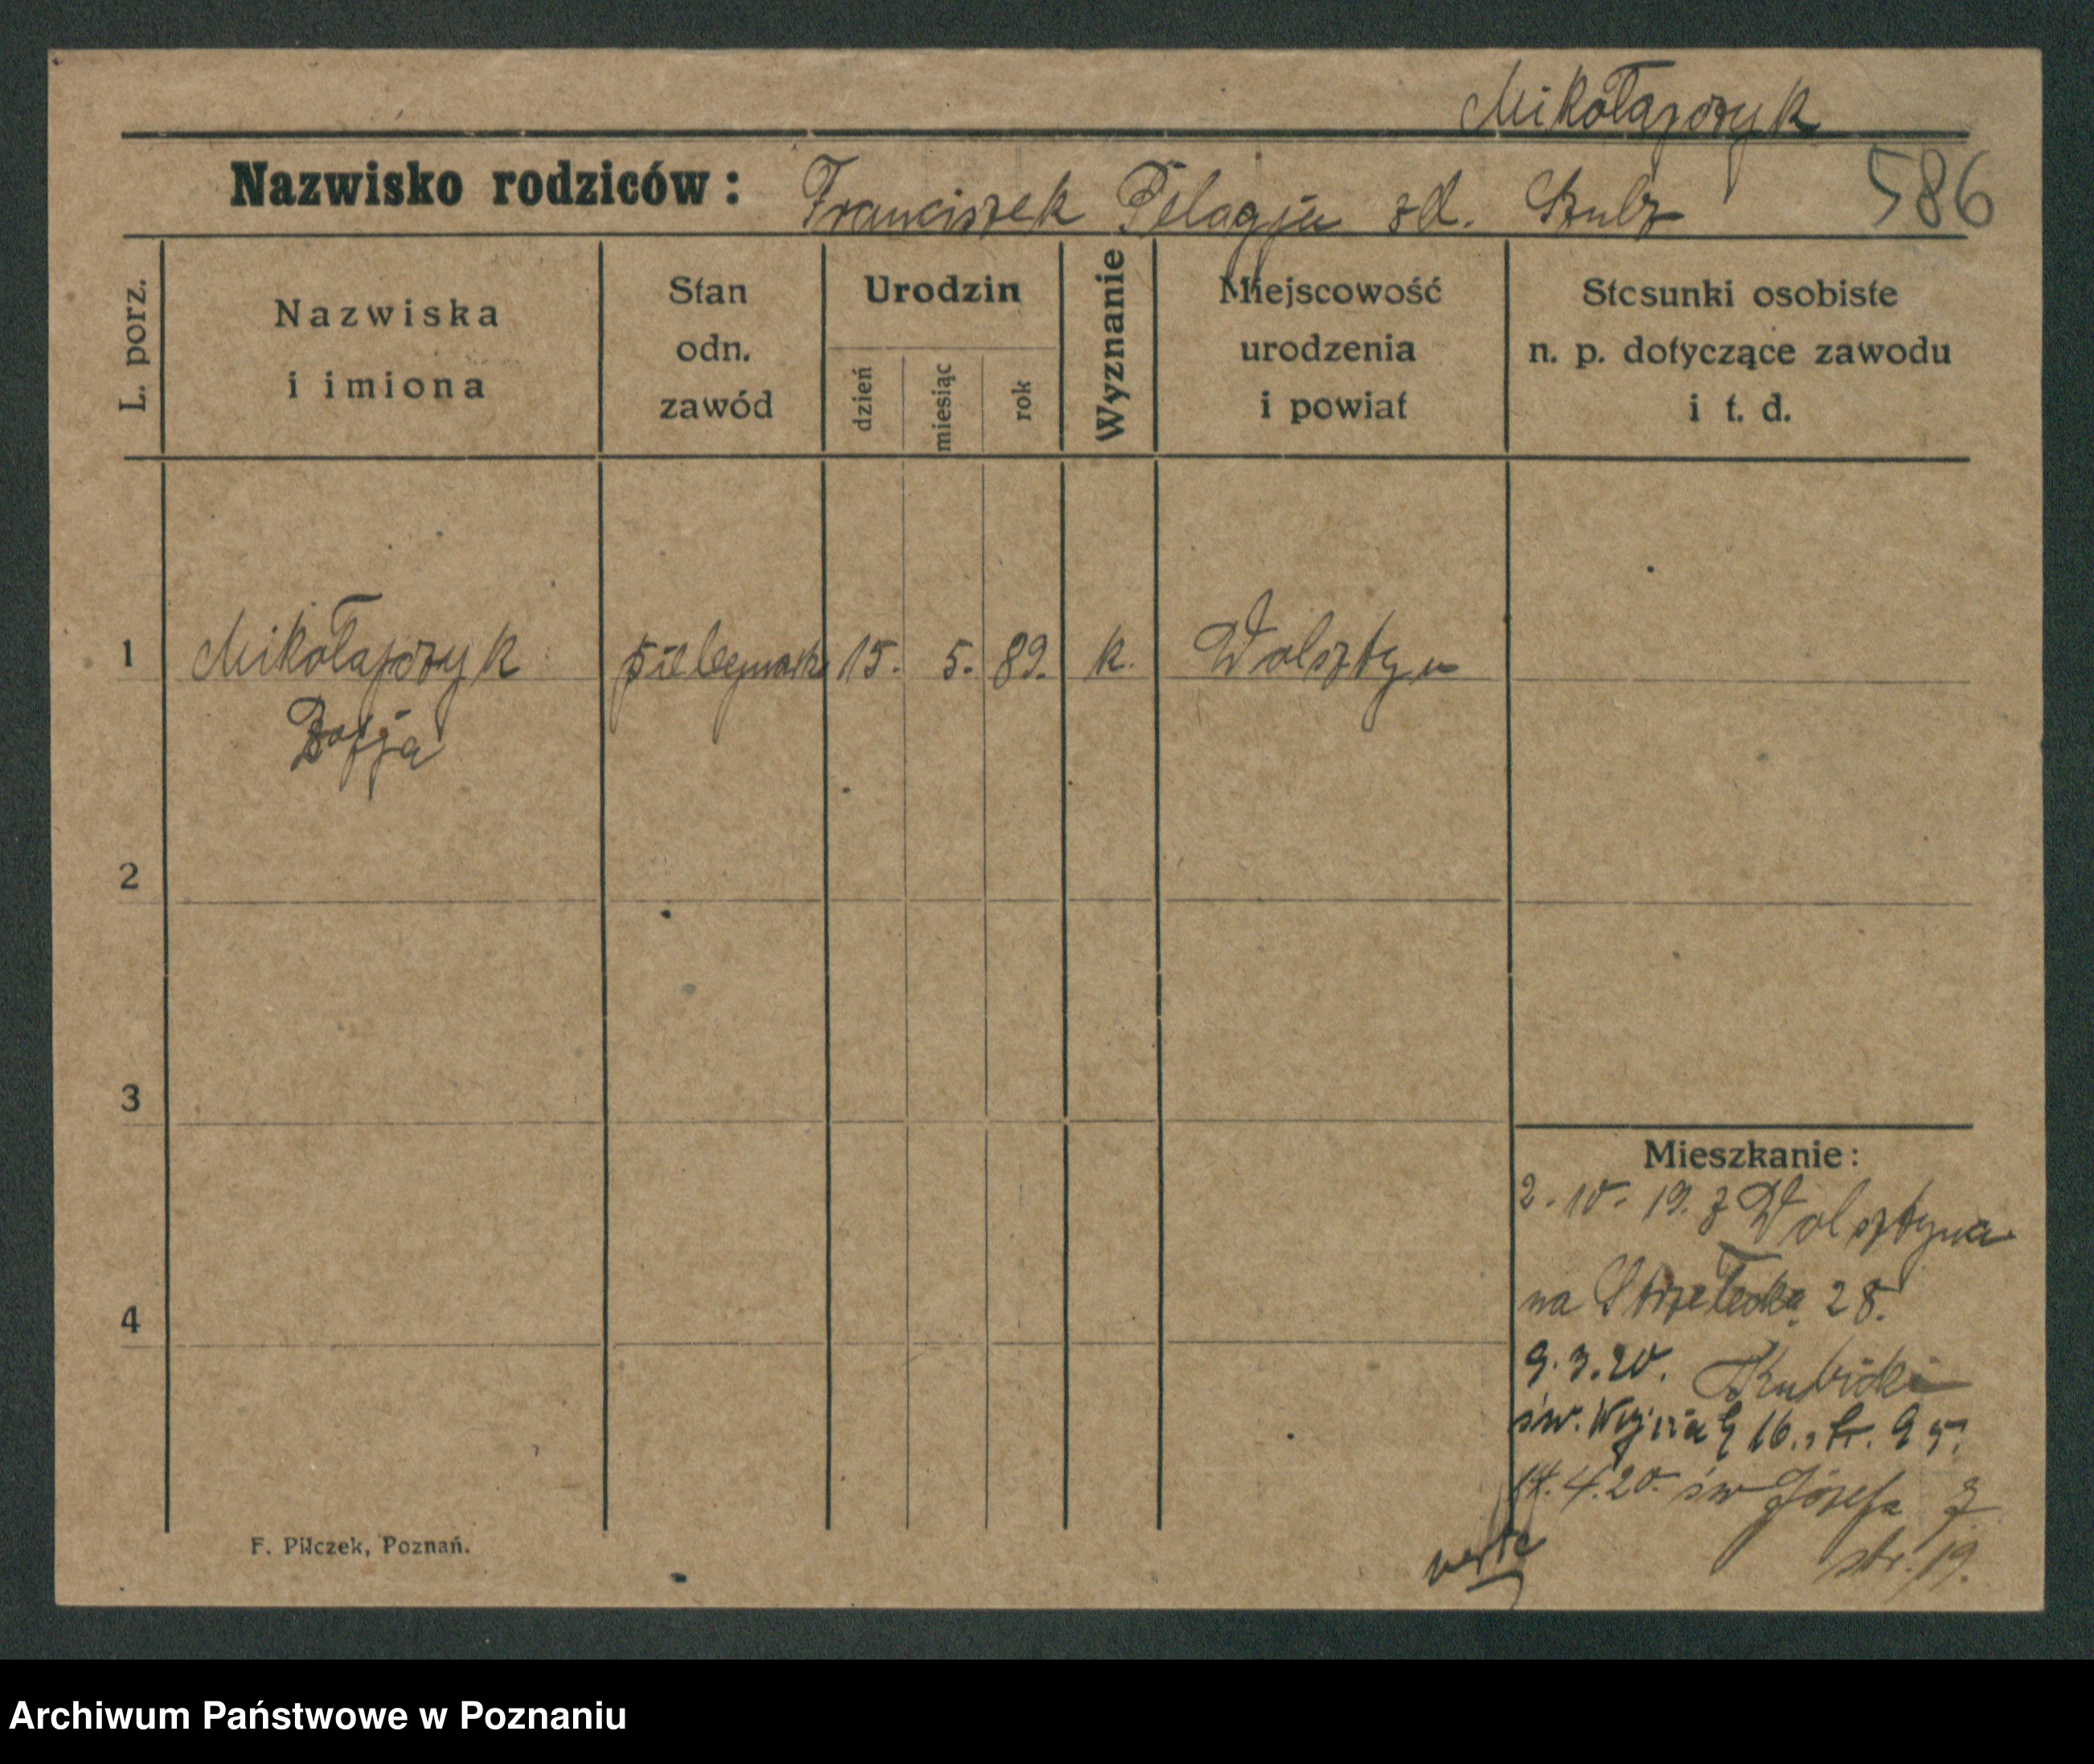 Mikołajczyk
Nazwisko rodziców: Franciszek Pelagja zd. Szulz
586
L. porz.
Nazwiska
i imiona
Stan
odn.
zawód
Urodzin
dzień
miesiąc
rok
Wyznanie
Miejscowość
urodzenia
i powiat
Stosunki osobiste
n. p. dotyczące zawodu
i t. d.
1 Mikołajczyk 15. 5. 89. k. Wolsztyn
Zofja
2
3
Mieszkanie:
2. 10. 19. z Wolsztyna
na Strzelecką 28.
4
9.3.20. Kubicki
św. Wojciech 16. str. 95.
14.4.20. św Józefa
str. 19.
verte
F. Pilczek, Poznań.
Archiwum Państwowe w Poznaniu